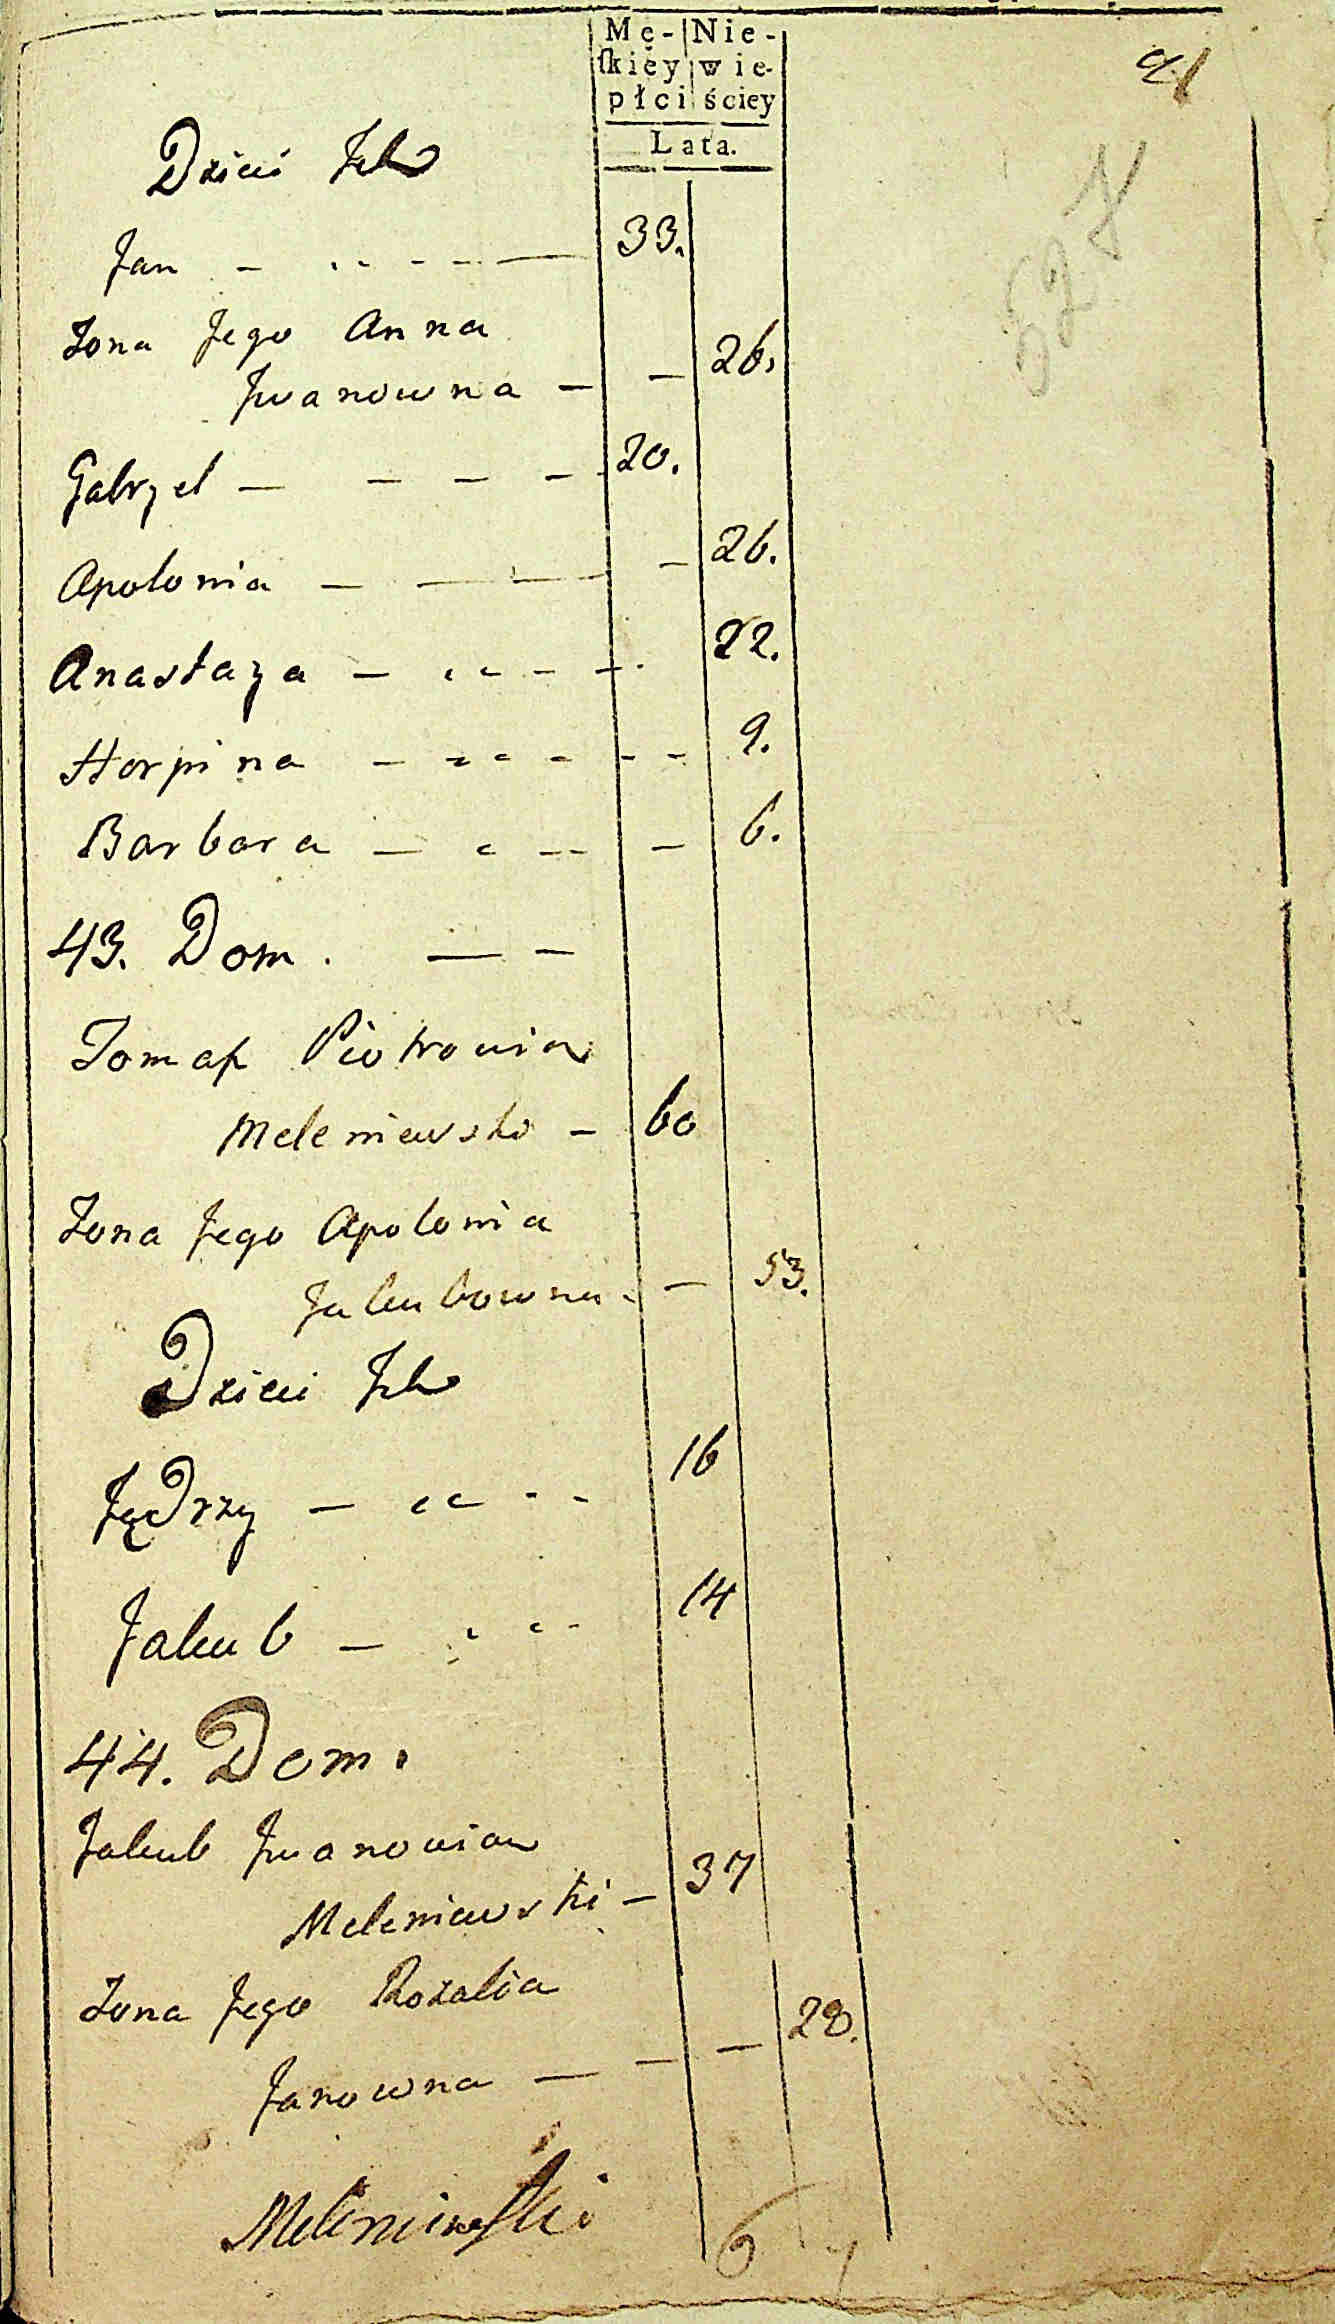 Mę- Nie-
ſkiéy wie-
płci ściey
Lata.
Dzieci Ich
Jan - - - - 33.
Zona Jego Anna
Jwanowna - - 26.
Gabryel - - - - 20.
Apolonia - - - - 26.
Anastazya - - - - 22.
Horpina - - - - - - 9.
Barbara - - - - 6.
43. Dom. - -
Tomaſz Piotrowicz
Meleniewski - 60
Zona Jego Apolonia
Jakubowna - - 53.
Dzieci Ich
Jędrzy - - - - 16
Jakub - - - 14
44. Dom.
Jakub Jwanowicz
Meleniewski - 37
Zona Jego Rozalia
Janowna - - - 28.
Meleniewſki
6